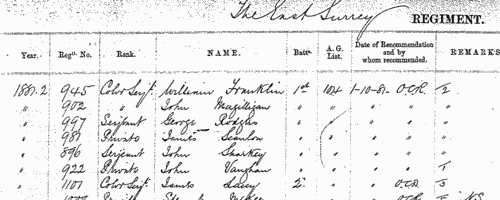 The East Surrey REGIMENT.
Year. Regtl. No. Rank. NAME. Batn. A. G. List. Date of Recommendation and by whom recommended. REMARKS
1881-2 945 Color Serjt. William Franklin 1st 104 1-10-81 O.C.R. 2
" 902 " John Magilligan " " " " "
" 997 Serjeant George Rodgers " " " " "
" 987 Private James Scanlon " " " "
" 896 Serjeant John Sharkey " " " "
" 922 Private John Vaughan " " " "
" 1101 Color Serjt. James Lacey 2 " " O.C.R.